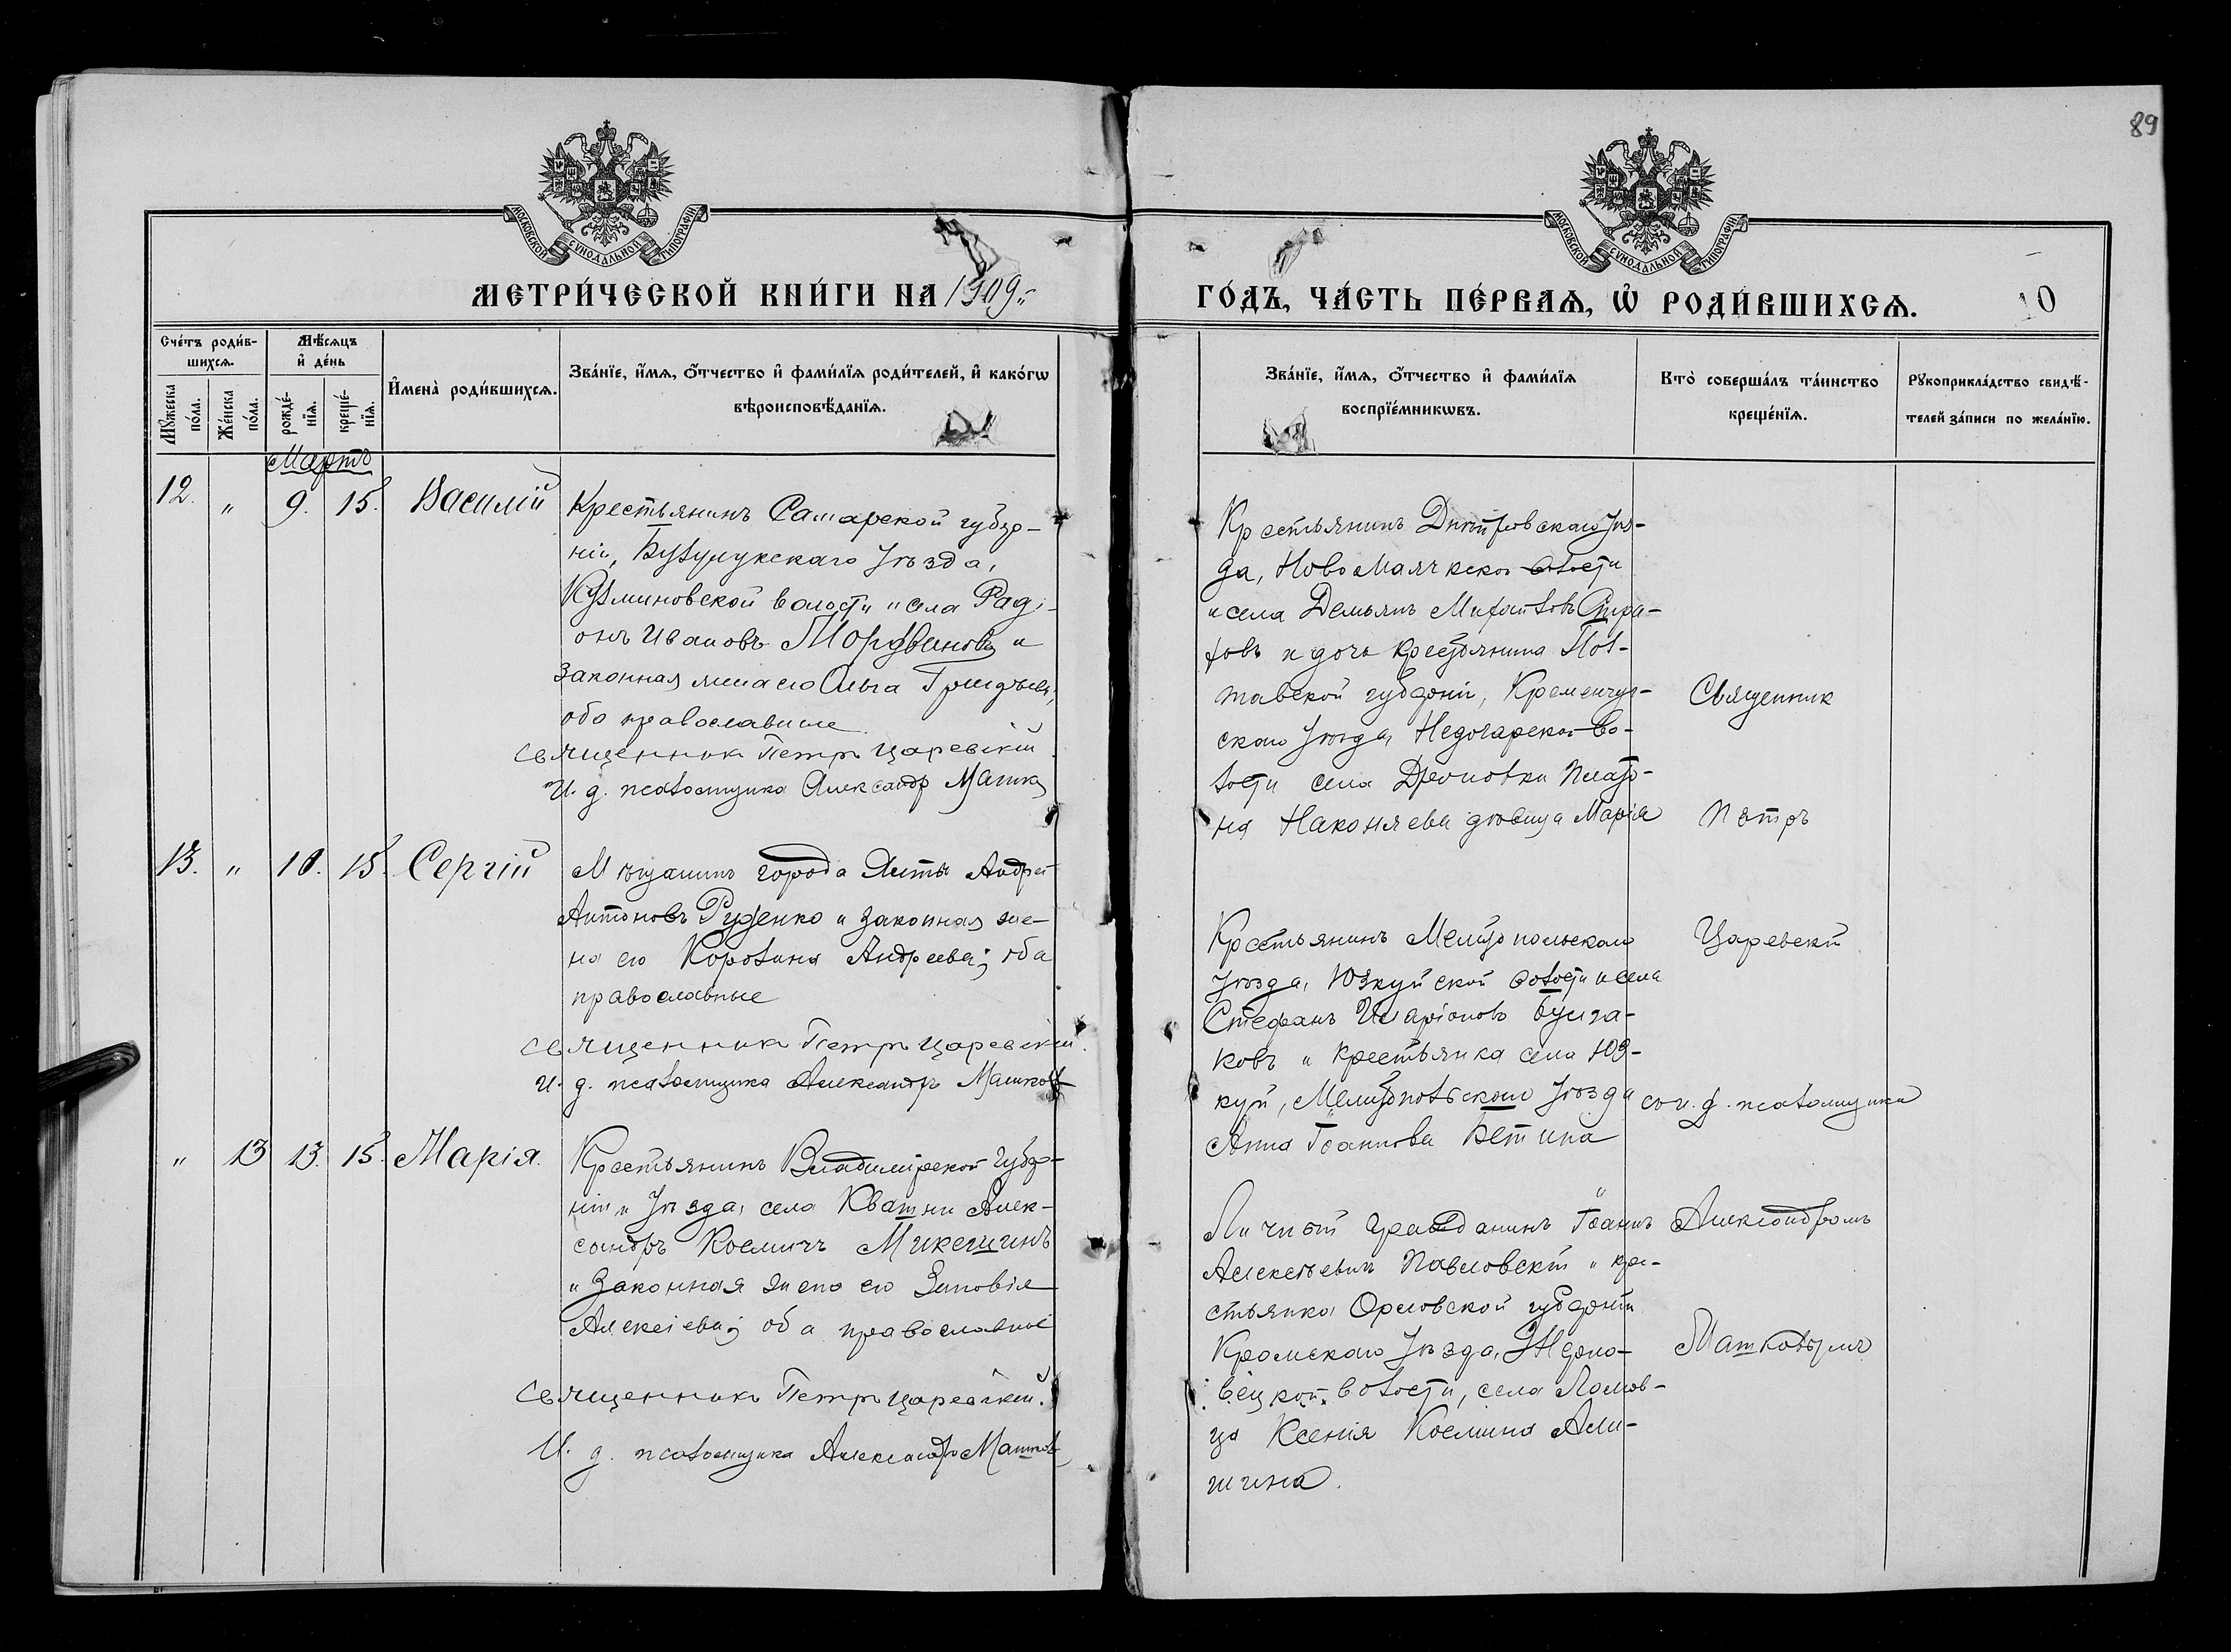 89
МОСКОВСКОЙ СѴНОДАЛЬНОЙ ТИПОГРАФІИ
МОСКОВСКОЙ СѴНОДАЛЬНОЙ ТИПОГРАФІИ
МЕТРИ́ЧЕСКОЙ КНИ́ГИ НА 1909 г.
ГО́ДЪ, ЧА́СТЬ ПЕ́РВАѦ, Ѡ҆ РОДИ́ВШИХСѦ. 10
Сче́тъ роди́в-
шихсѧ.
Мꙋ́жеска по́ла.
Же́нска по́ла.
Мѣ́сѧцъ
и҆ де́нь
рожде́-нїѧ.
креще́-нїѧ.
И҆мена̀ роди́вшихсѧ.
Зва́нїе, и҆́мѧ, ѻ҆́тчество и҆ фами́лїѧ роди́телей, и҆ како́гѡ
вѣроисповѣ́данїѧ.
Зва́нїе, и҆́мѧ, ѻ҆́тчество и҆ фами́лїѧ
воспрїе́мникѡвъ.
Кто̀ соверша́лъ та́инство
креще́нїѧ.
Рꙋкоприкла́дство свидѣ́-
телей за́писи по жела́нїю.
Мартъ
12. " 9. 15. Василій
Крестьянинъ Самарской губер-
ніи, Бузулукскаго уѣзда,
Кузминовской волости и села Раді-
онъ Ивановъ Мордвиновъ и
законная жена его Ольга Григорьева,
оба православные
Священникъ Петръ Царевскій.
И. д. псаломщика Александръ Машков
Крестьянинъ Днѣпровскаго уѣз-
да, Новомаячкской волости
и села Демьянъ
и дочь крестьянина Пол-
тавской губерніи, Кременчуг-
скаго уѣзда, Недогарской во-
лости села Плато-
на девица Марія
Священник
Петръ
13. " 10. 15. Сергій
Мѣщанинъ города Ялты Андрей
Антоновъ Руденко и законная же-
на его Андреева; оба
православные
Священникъ Петръ Царевскій.
И. д. псаломщика Александръ Машков
Крестьянинъ Мелитопольскаго
уѣзда, Юзкуйской волости и села
Стефанъ Иларіоновъ
ковъ и крестьянка села Юз-
куй, Мелитопольскаго уѣзда
Анна Іоаннова Бетина
Царевскій
со и. д. псаломщика
" 13 13. 15. Марія.
Крестьянинъ Владимірской губер-
ніи и уѣзда, села Квашни Алек-
сандръ Косминъ Микешинъ
и законная жена его Зиновія
Алексіева; оба православные
Священникъ Петръ Царевскій.
И. д. псаломщика Александръ Машков
Личный гражданинъ Іоаннъ
Алексѣевичъ Павловскій и кре-
стьянка Орловской губерніи
Кромскаго уѣзда,
волости, села Ломов-
ца Ксенія Космина Али-
шина.
Александромъ
Машковымъ